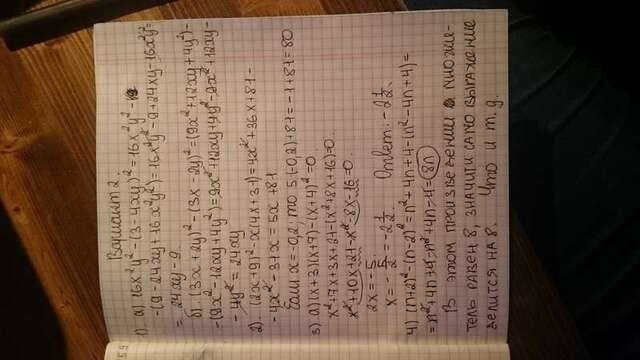 Вариант 2.
1). а) 16x²y² - (3 - 4xy)² = 16x²y² -
-(9 - 24xy + 16x²y²) = 16x²y² - 9 + 24xy - 16x²y² =
= 24xy - 9.
б). (3x + 2y)² - (3x - 2y)² = (9x² + 12xy + 4y²) -
-(9x² - 12xy + 4y²) = 9x² + 12xy + 4y² - 9x² + 12xy -
- 4y² = 24xy
2). (2x + 9)² - x(4x + 31) = 4x² + 36x + 81 -
- 4x² - 31x = 5x + 81
Если x = -0,2; то 5·(-0,2) + 81 = -1 + 81 = 80
3) а) (x + 3)(x + 7) - (x + 4)² = 0
x² + 7x + 3x + 21 - (x² + 8x + 16) = 0.
x² + 10x + 21 - x² - 8x - 16 = 0.
2x = -5.
x = - 5/2 = -2 1/2. Ответ: -2 1/2.
4) (n+2)² - (n-2)² = n² + 4n + 4 - (n² - 4n + 4) =
= n² + 4n + 4 - n² + 4n - 4 = 8n
В этом произведении множи-
тель равен 8, значит само выражение
делится на 8. Что и т.д.